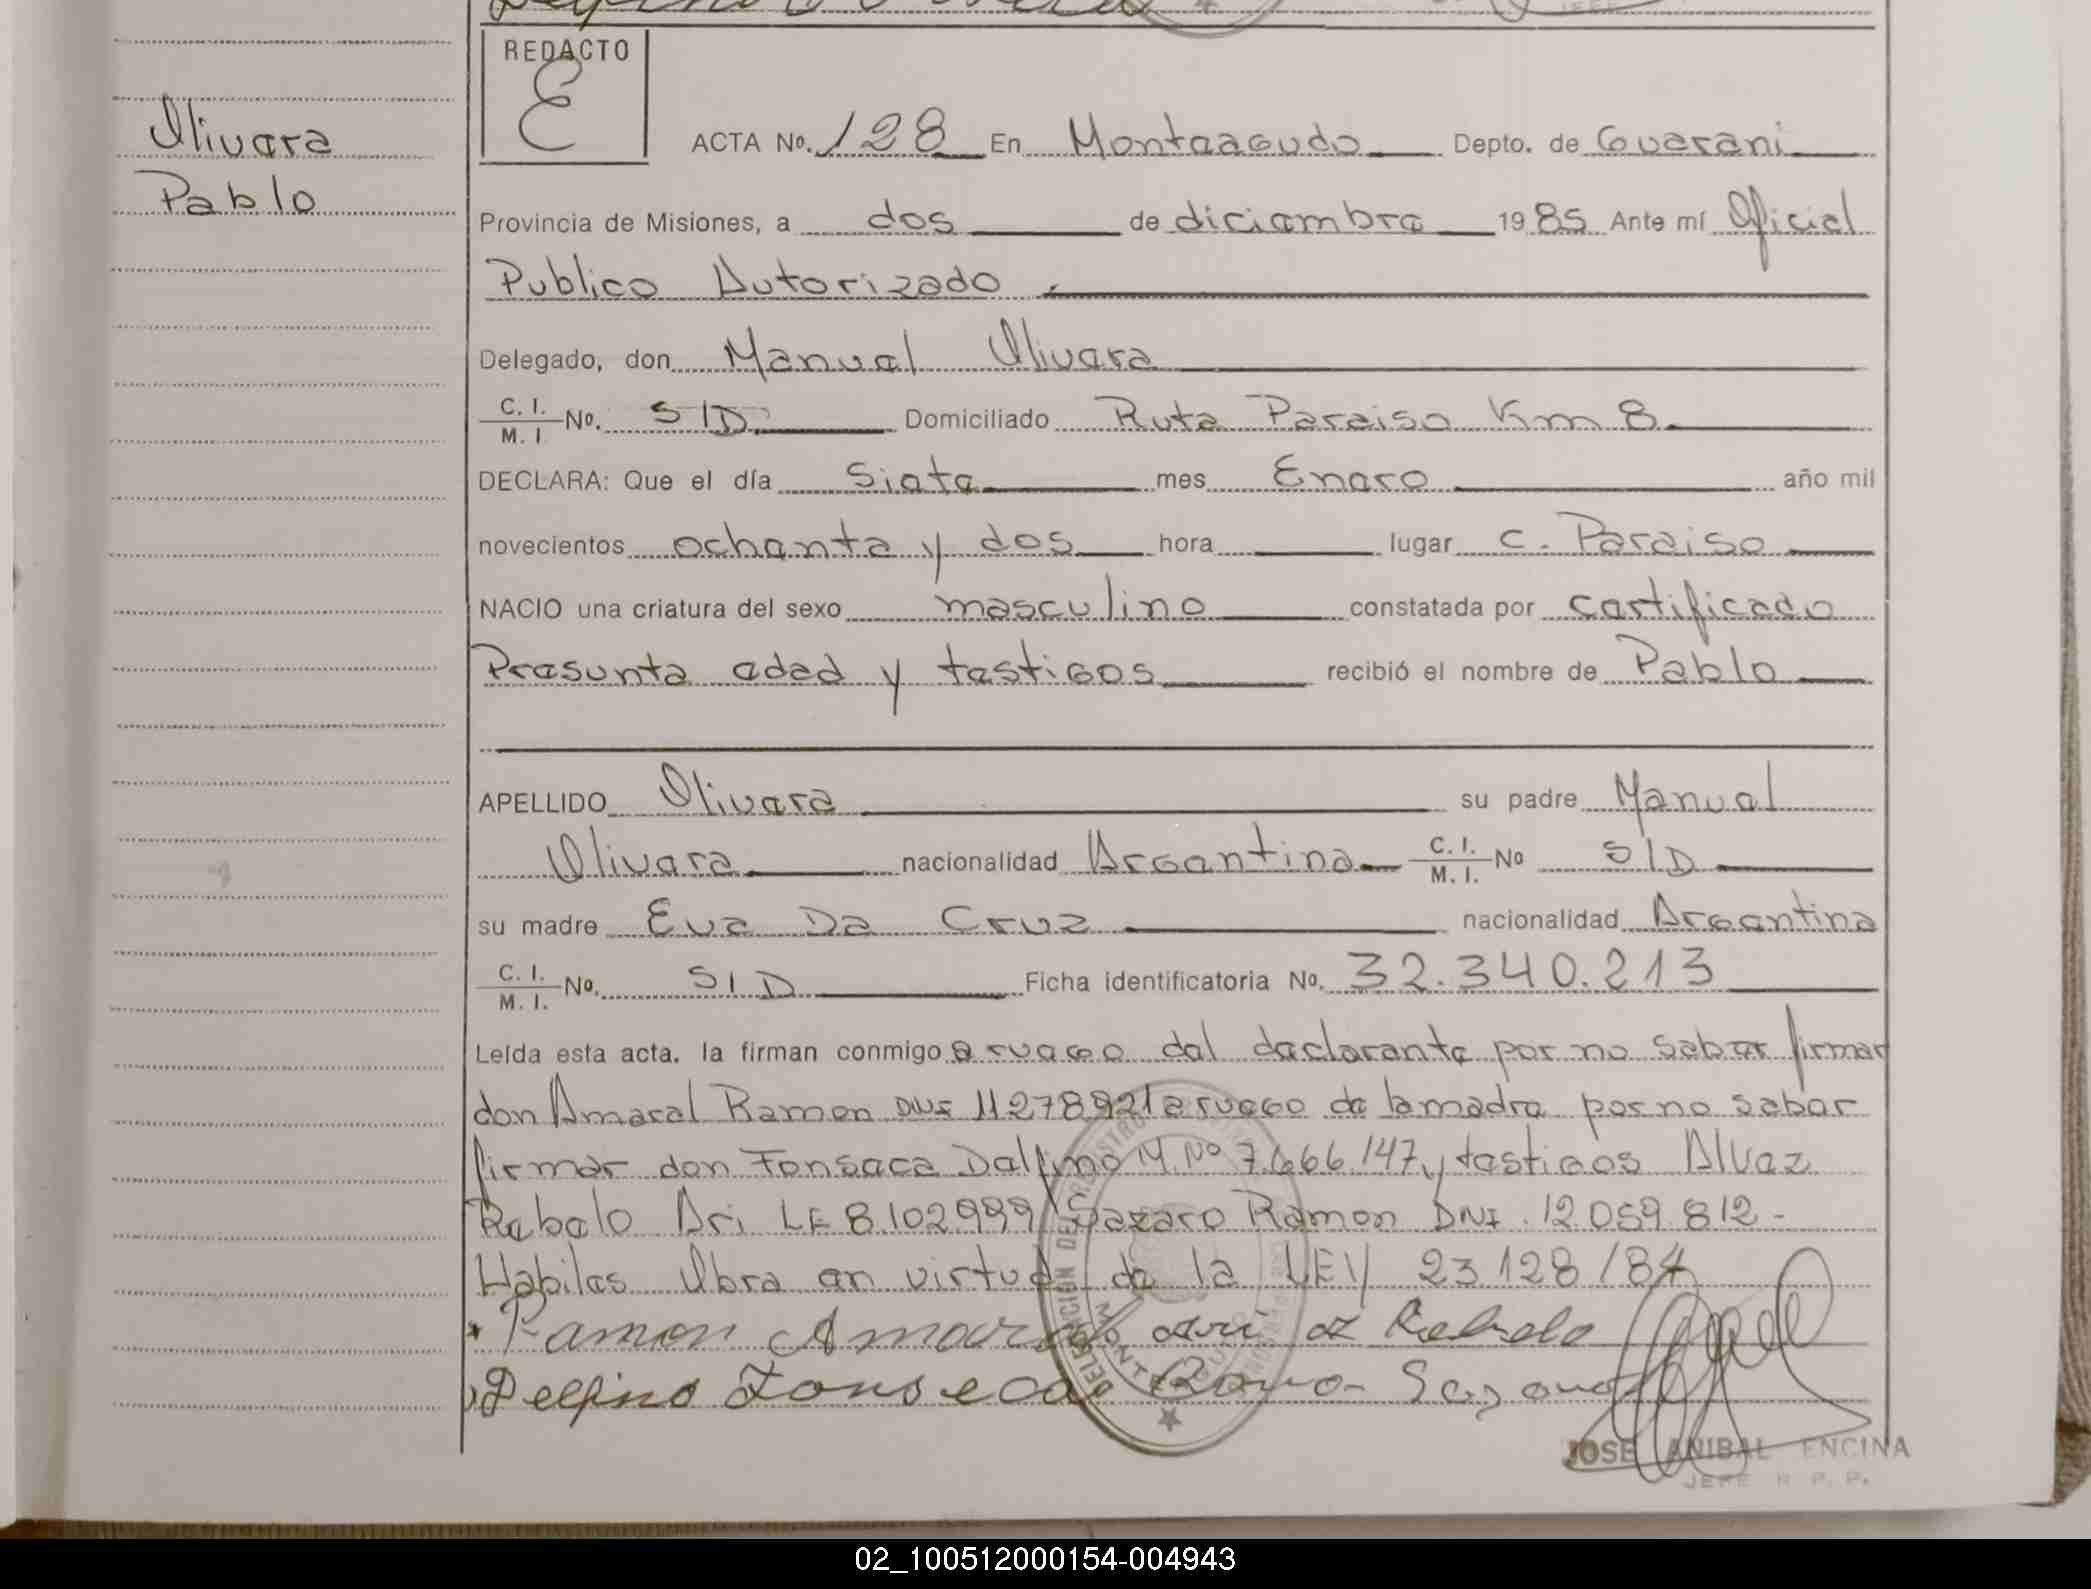 REDACTO
E
Olivera
Pablo
ACTA No. 128 En Monteagudo Depto. de Guarani
Provincia de Misiones, a dos de diciembre 1985 Ante mí Oficial
Publico Autorizado
Delegado, don Manuel Olivera
C. I. / M. I. No. S/D Domiciliado Ruta Paraiso Km 8
DECLARA: Que el día Siete mes Enero año mil
novecientos ochenta y dos hora lugar C. Paraiso
NACIO una criatura del sexo masculino constatada por certificado
Presunta edad y testigos recibió el nombre de Pablo
APELLIDO Olivera su padre Manuel
Olivera nacionalidad Argentina C. I. / M. I. No S/D
su madre Eva Da Cruz nacionalidad Argentina
C. I. / M. I. No. S/D Ficha identificatoria No. 32.340.213
Leída esta acta. la firman conmigo a ruego del declarante por no saber firmar
don Amaral Ramon DNI 11278921 a ruego de la madre por no saber
firmar don Fonseca Delfino M. No 7.666.147 y testigos Alvez
Rebelo Ari LE 8.102.999 Sazaro Ramon DNI. 12 059 812 -
Habiles Obra en virtud de la LEY 23 128/84
Ramon Amaral Ari az Rebelo
Delfino Fonseca
DELEGACION DEL REGISTRO
MONTEAGUDO
JOSE ANIBAL ENCINA
JEFE R. P. P.
02_100512000154-004943